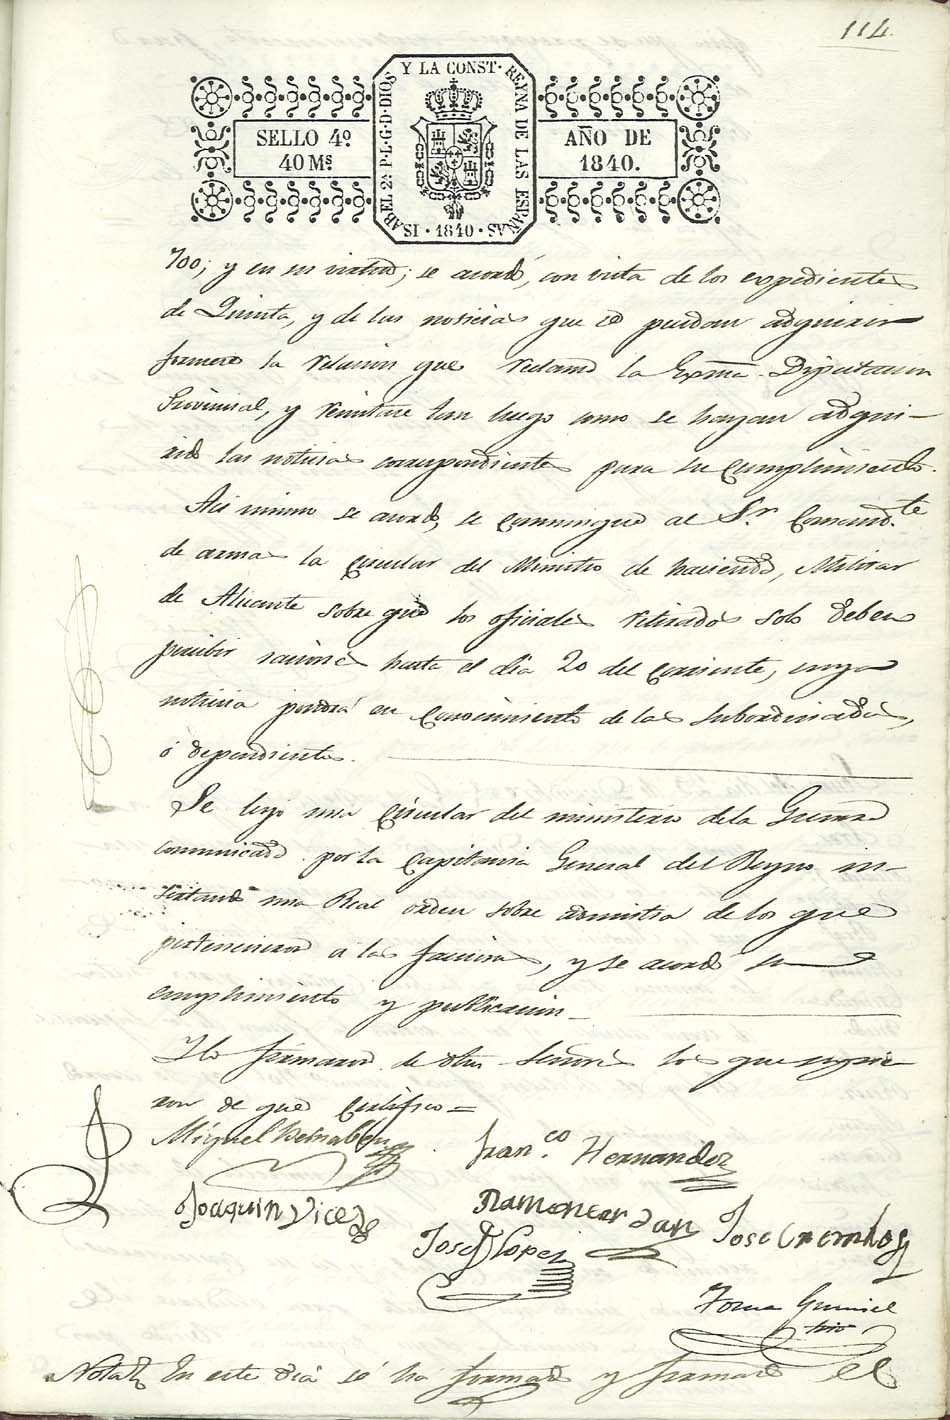 114.
ISABEL 2ª P·L·G·D·DIOS Y LA CONST· REYNA DE LAS ESPAÑAS · 1840 ·
SELLO 4º
40 Ms.
AÑO DE
1840.
y en su virtud; se acordó, con vista de los expedientes
de Quinta, y de las noticias que se puedan adquirir
formese la relacion que reclama la Exma. Diputacion
Provincial, y remitase tan luego como se hayan adqui-
rido las noticias correspondientes para su cumplimiento.
Asi mismo se acordó, se comunique al Sr. Comandte.
de armas la circular del Ministro de hacienda, Militar
de Alicante sobre que los oficiales retirados solo deben
percibir raciones hasta el dia 20 del corriente, cuya
noticia pondrá en conocimiento de las subordinadas,
ó dependientes.
Se leyo una circular del ministerio de la Guerra
comunicada por la Capitania General del Reyno in-
sertando una Real orden sobre de los que
pertenecieron a las facciones, y se acordó su
cumplimiento y publicacion.
Y lo firmaron de dhos Señores los que supie
ron de que certifico=
Miguel Bernabeu
Franco. Hernandez
Joaquin Vicedo
Ramon Cerdan
Jose Cremades
Jose Lopez
Tomas
srio
Nota En este dia se ha formado y firmado el